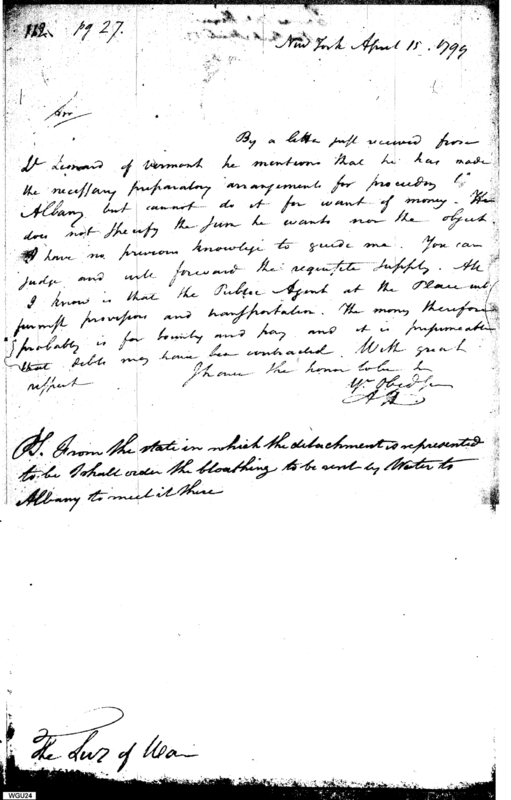 112. pg 27.
New York April 15. 1799
Sir
By a letter just received from
Lt Leonard of Vermont he mentions that he has made
the necessary preparatory arrangements for proceeding to
Albany but cannot do it for want of money. He
does not specify the sum he wants nor the object
I have no previous knowlege to guide me. You can
judge and will forward the requisite supply. All
I know is that the Public Agent at the Place will
furnish provisions and transportation. The money therefore
probably is for bounty and pay and it is presumeable
that debts may have been contracted. With great
respect I have the honor to be Sr
Yr. Obed Ser
A H
PS. From the state in which the detachment is represented
to be I shall order the Cloathing to be sent by Water to
Albany to meet it there
The Secy of War
WGU24